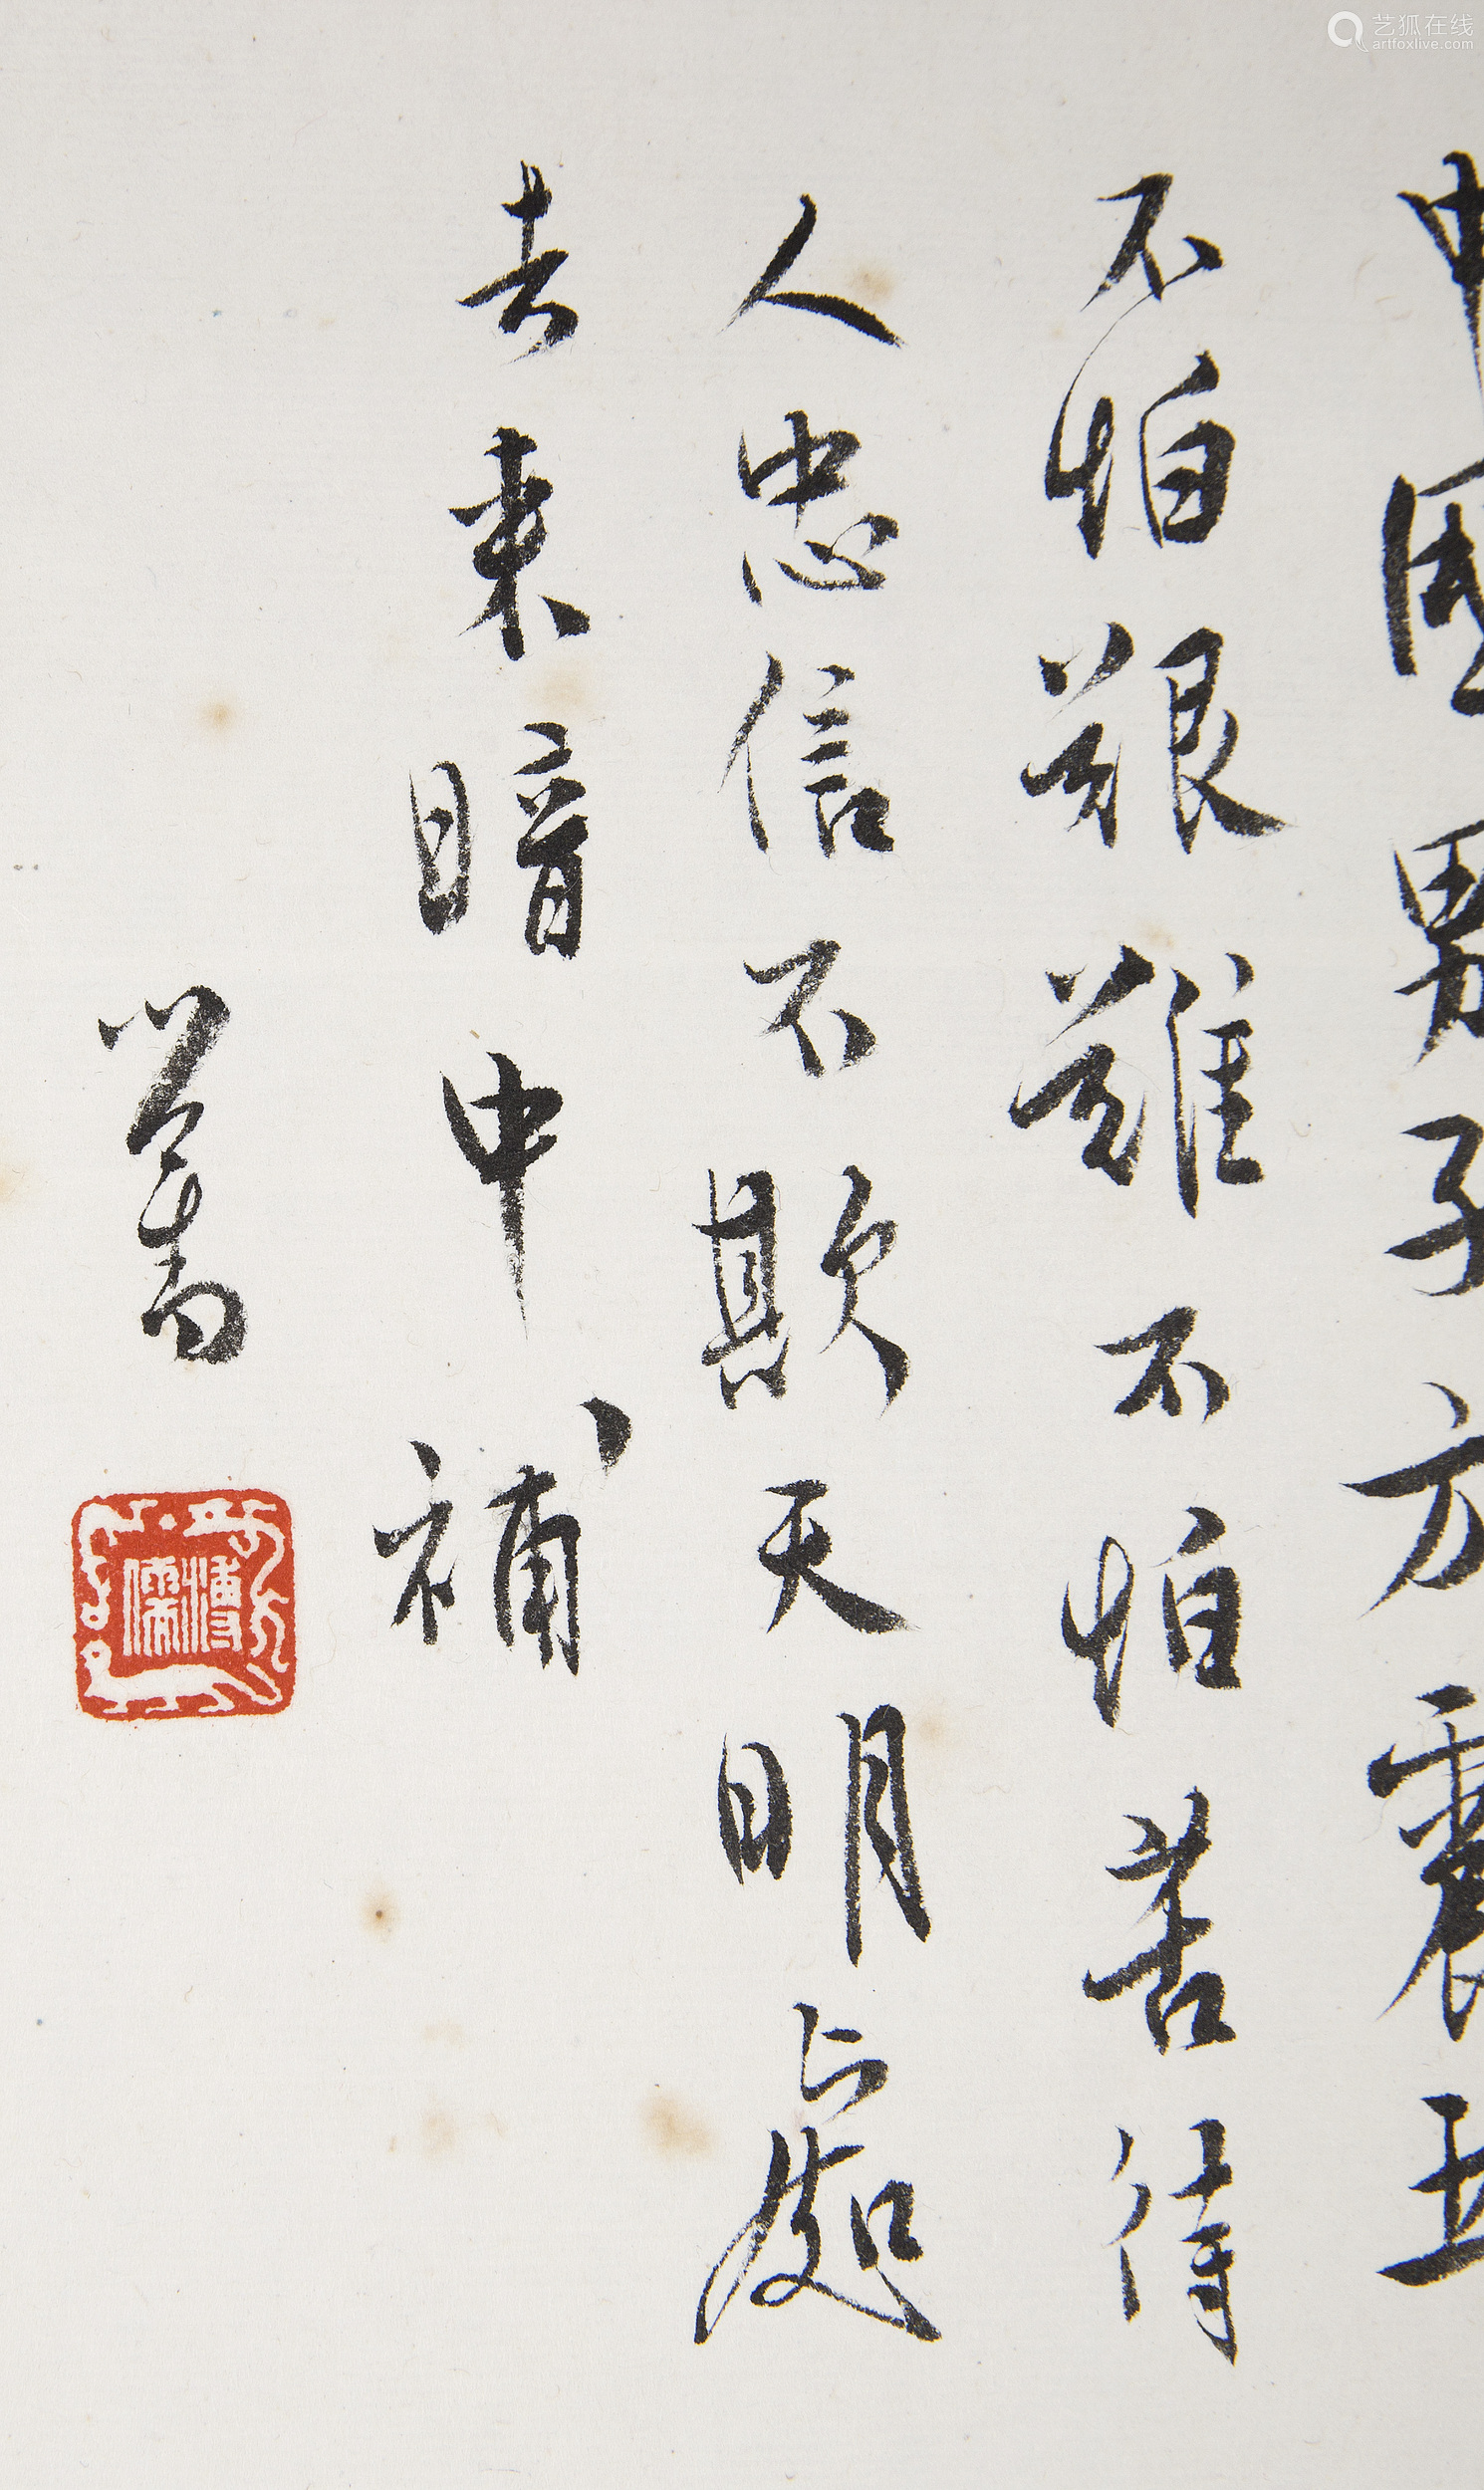 中國男子方震五
不怕艱難不怕苦待
人忠信不欺天明處
去來暗中補
心畬
溥儒
艺狐在线
artfoxlive.com